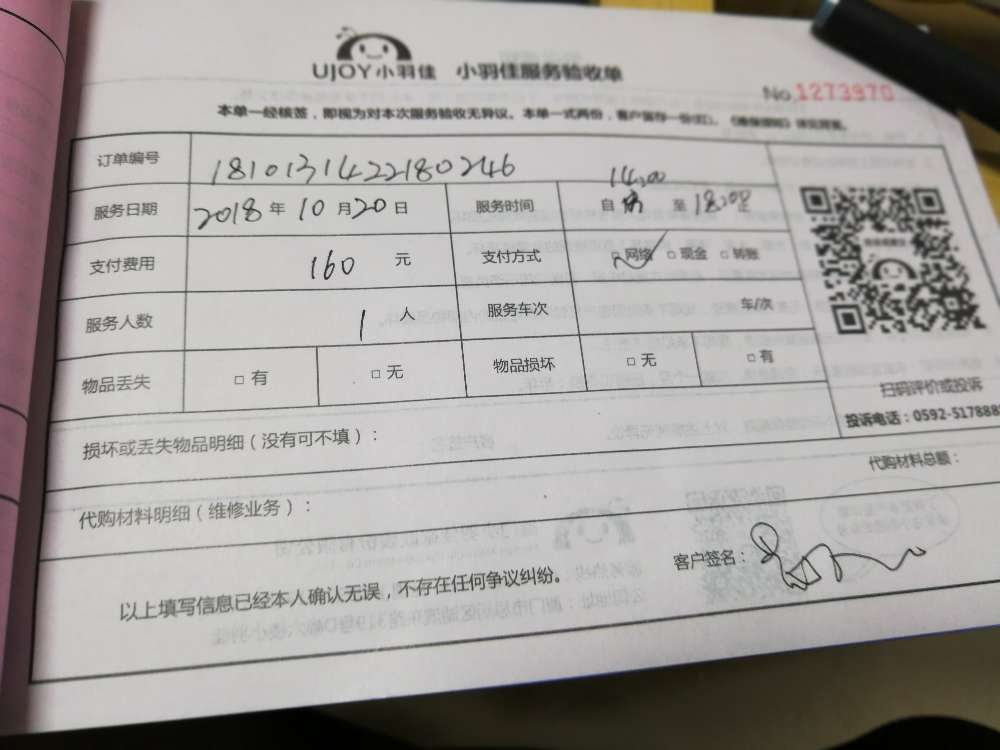 UJOY小羽佳 小羽佳服务验收单
No.1273970
本单一经核签，即视为对本次服务验收无异议。本单一式两份，客户留存一份(红)。
订单编号 1810131422180246
服务日期 2018年10月20日 服务时间 自 14:00 至 18:00
支付费用 160 元 支付方式 □网络 □现金 □转账
服务人数 1 人 服务车次 车/次
物品丢失 □有 □无 物品损坏 □无 □有
扫码评价或投诉
投诉电话：0592-517888
损坏或丢失物品明细（没有可不填）：
代购材料明细（维修业务）： 代购材料总额：
以上填写信息已经本人确认无误，不存在任何争议纠纷。 客户签名：